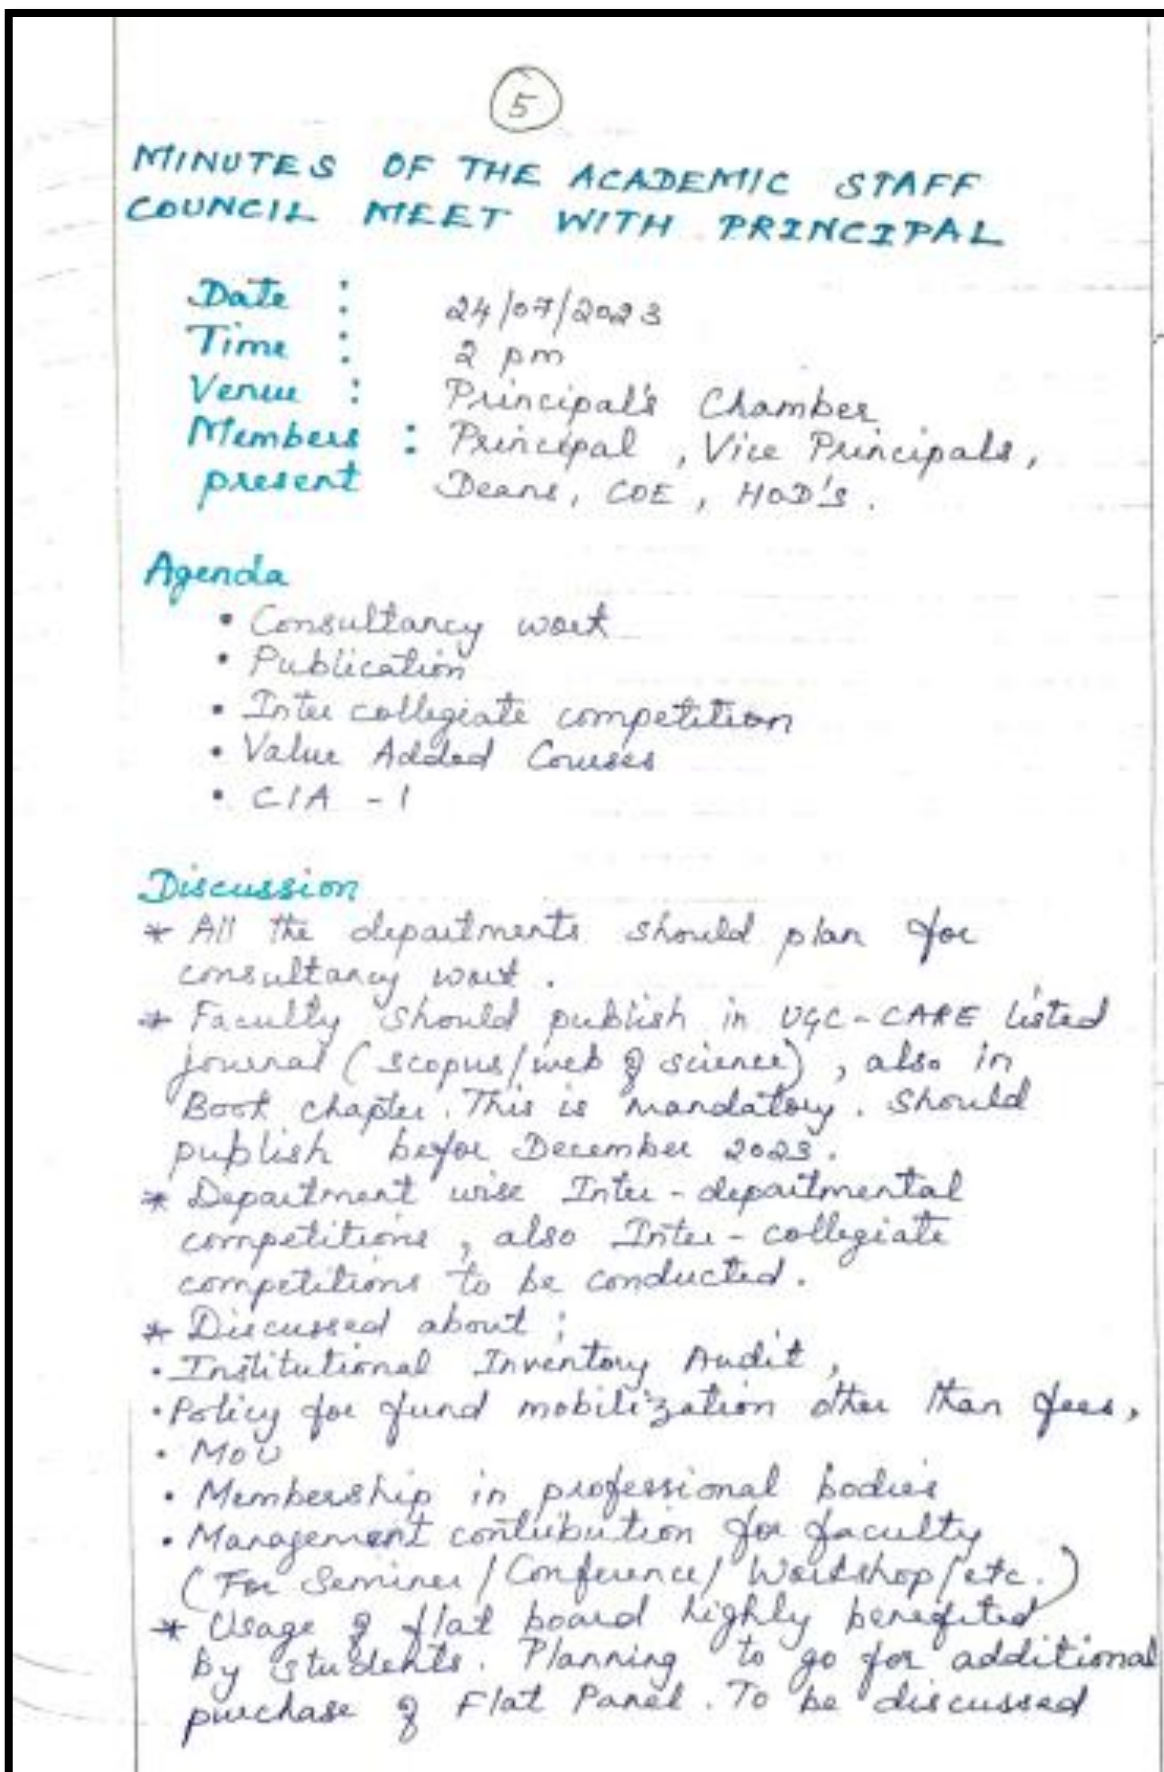 5
MINUTES OF THE ACADEMIC STAFF
COUNCIL MEET WITH PRINCIPAL
Date : 24/07/2023
Time : 2 pm
Venue : Principal's Chamber
Members : Principal, Vice Principals,
present Deans, COE, HOD's.
Agenda
• Consultancy work
• Publication
• Inter collegiate competition
• Value Added Courses
• CIA - 1
Discussion
* All the departments should plan for
consultancy work.
* Faculty should publish in UGC-CARE listed
journal (scopus/web of science), also in
Book chapter. This is mandatory. Should
publish befor December 2023.
* Department wise Inter-departmental
competitions, also Inter-collegiate
competitions to be conducted.
* Discussed about;
• Institutional Inventory Audit,
• Policy for fund mobilization other than fees,
• MOU
• Membership in professional bodies
• Management contribution for faculty
(For Seminer/Conference/Workshop/etc.)
* Usage of flat board highly benefited
by students. Planning to go for additional
purchase of Flat Panel. To be discussed